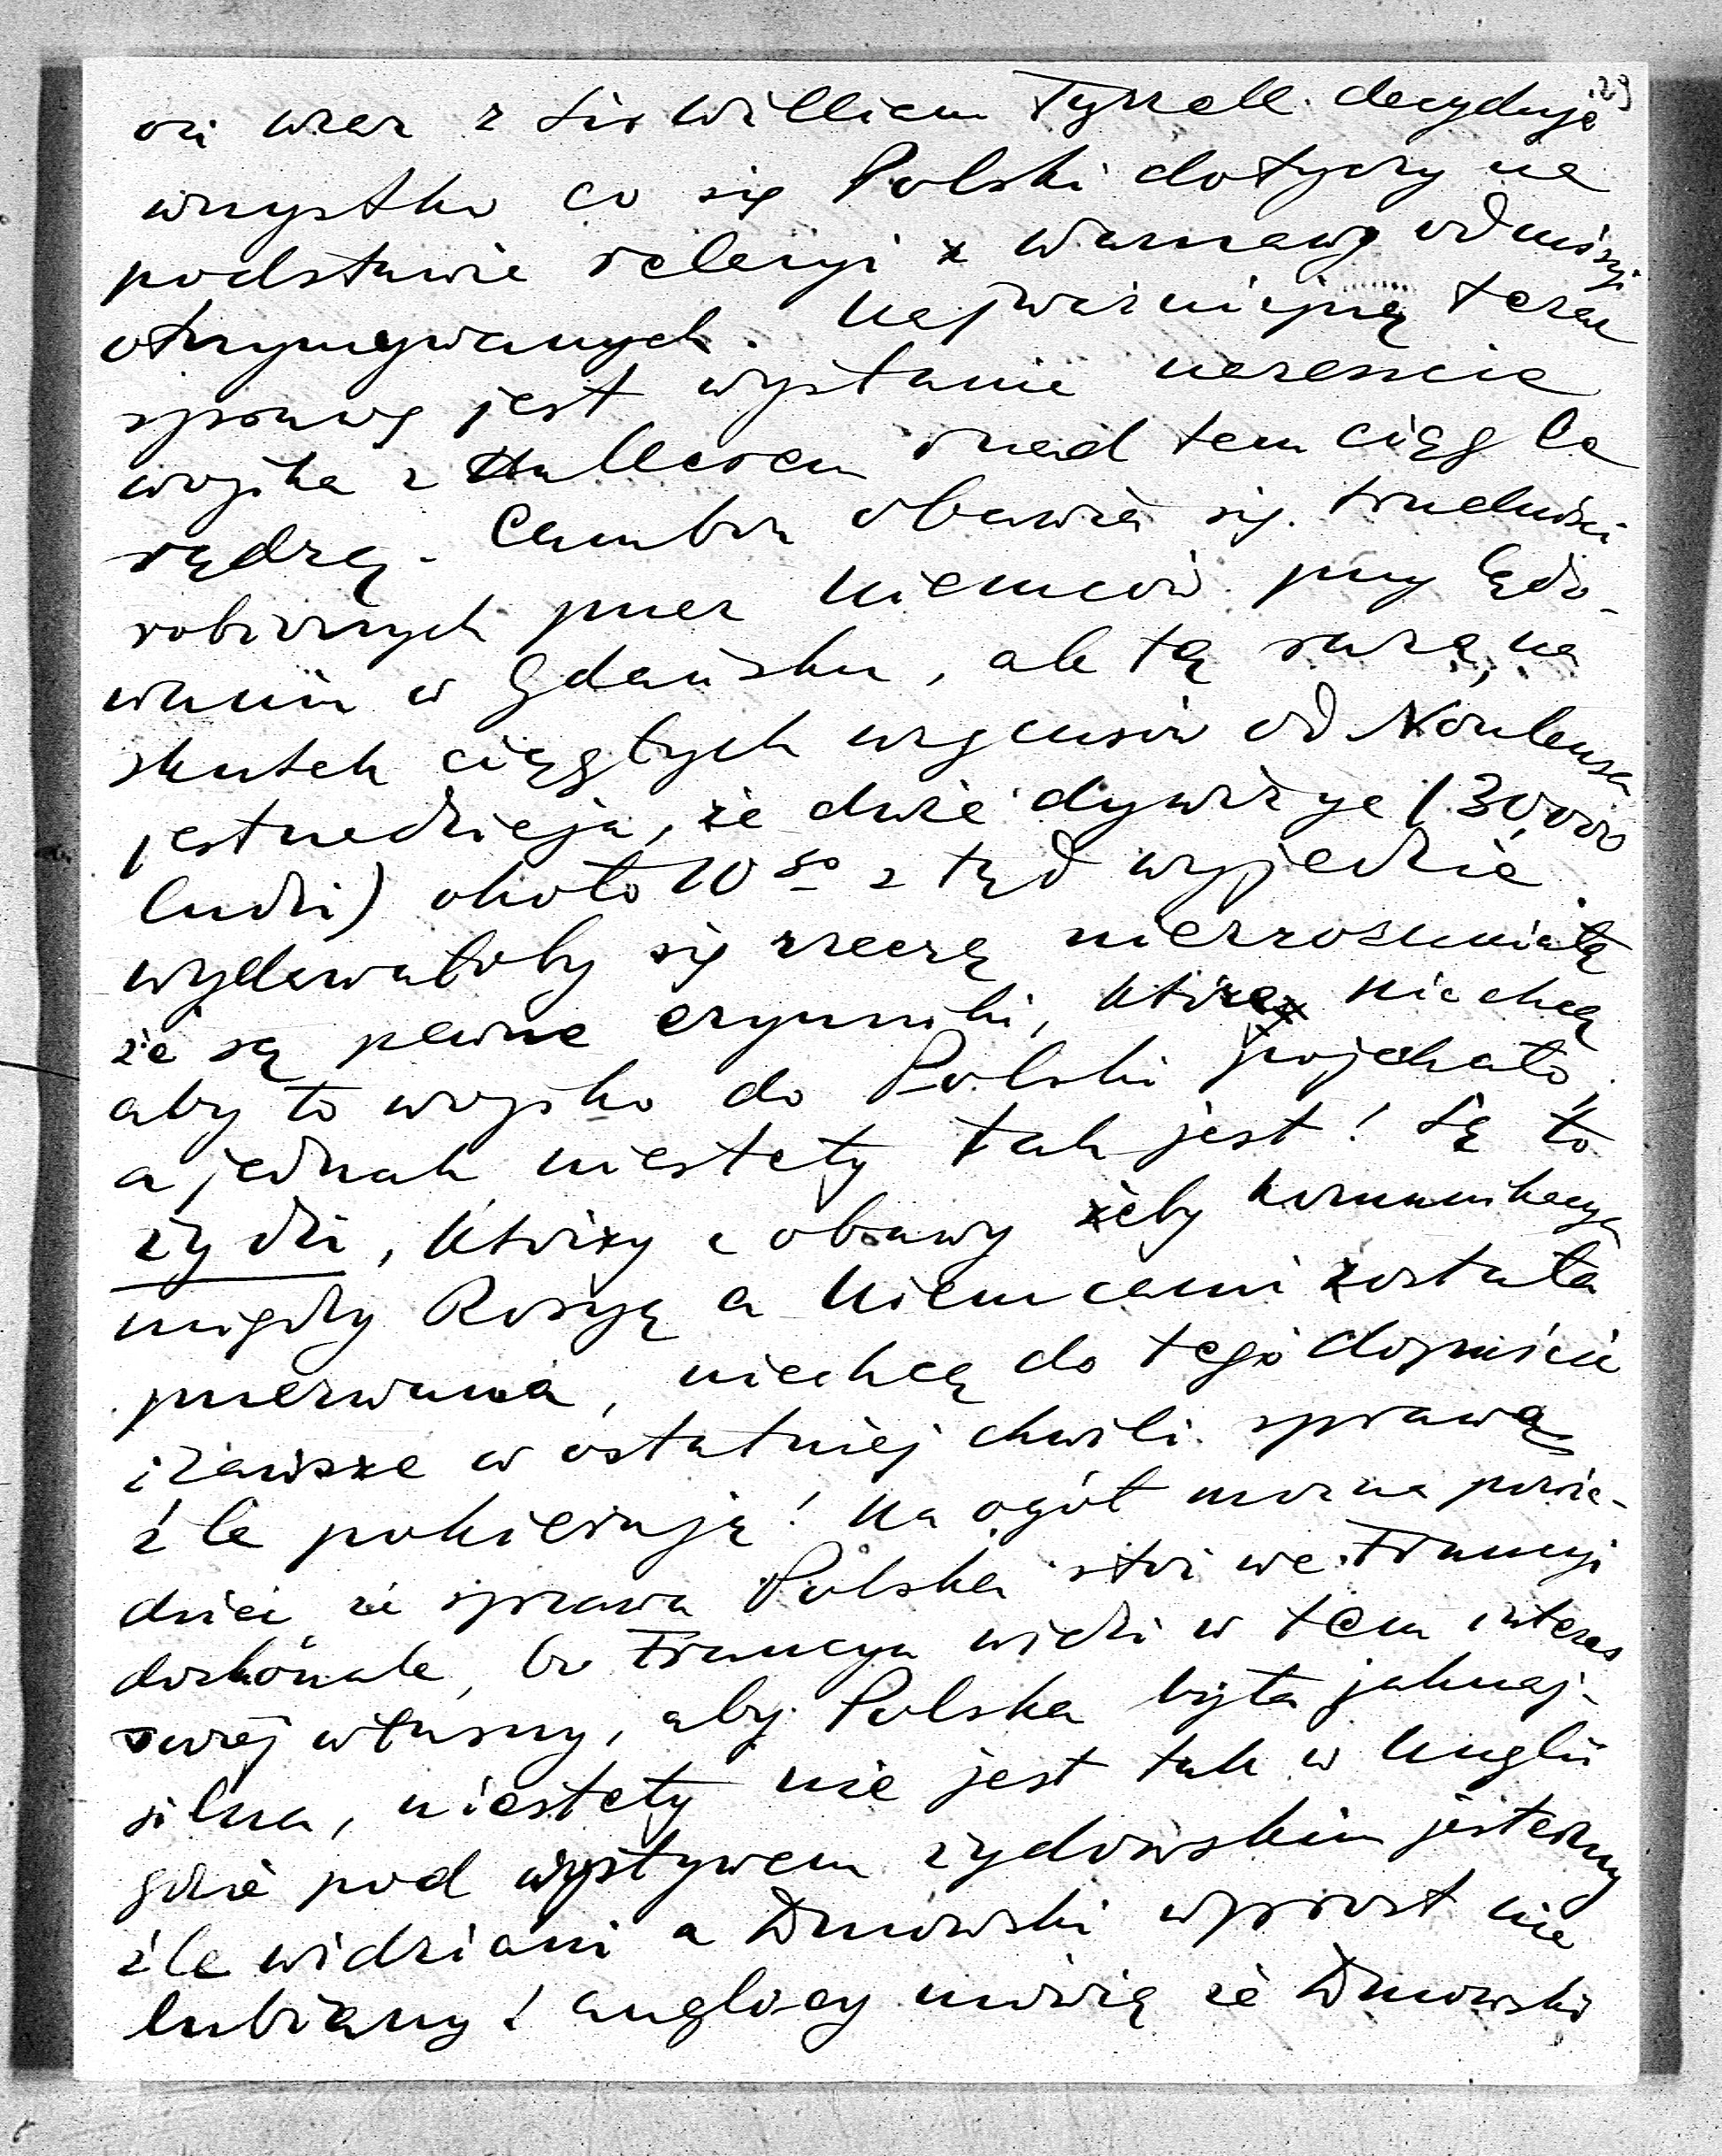 29
oni wraz z Sir William Tyrrell decydują
wszystko co się Polski dotyczy na
podstawie relacyi z Warszawy od misyi
otrzymywanych. Najważniejszą teraz
sprawą jest wysłanie nareszcie
wojska z Hallerem i nad tem ciągle
radzą. Cambon obawia się trudności
robionych przez Niemców przy lądo-
waniu w Gdańsku, ale tą razą, na
skutek ciągłych urgensów od Noulensa
jest nadzieja, że dwie dywizye (30,000
ludzi) około 10go z tąd wyjedzie.
wydawałoby się rzeczą niezrozumiałą
że są pewne czynniki, które niechcą
aby to wojsko do Polski pojechało,
a jednak niestety tak jest! Są to
żydzi, którzy z obawy żeby komunikacya
między Rosyą a Niemcami została
przerwana, niechcą do tego dopuścić
i zawsze w ostatniej chwili sprawą
źle pokierują! Na ogół można powie-
dzieć że sprawa Polska stoi we Francyi
doskonale, bo Francya widzi w tem interes
swój własny, aby Polska była jaknaj-
silna, niestety nie jest tak w Anglii
gdzie pod wpływem żydowskim jesteśmy
źle widziani a Dmowski wprost nie
lubiany! anglicy mówią że Dmowski